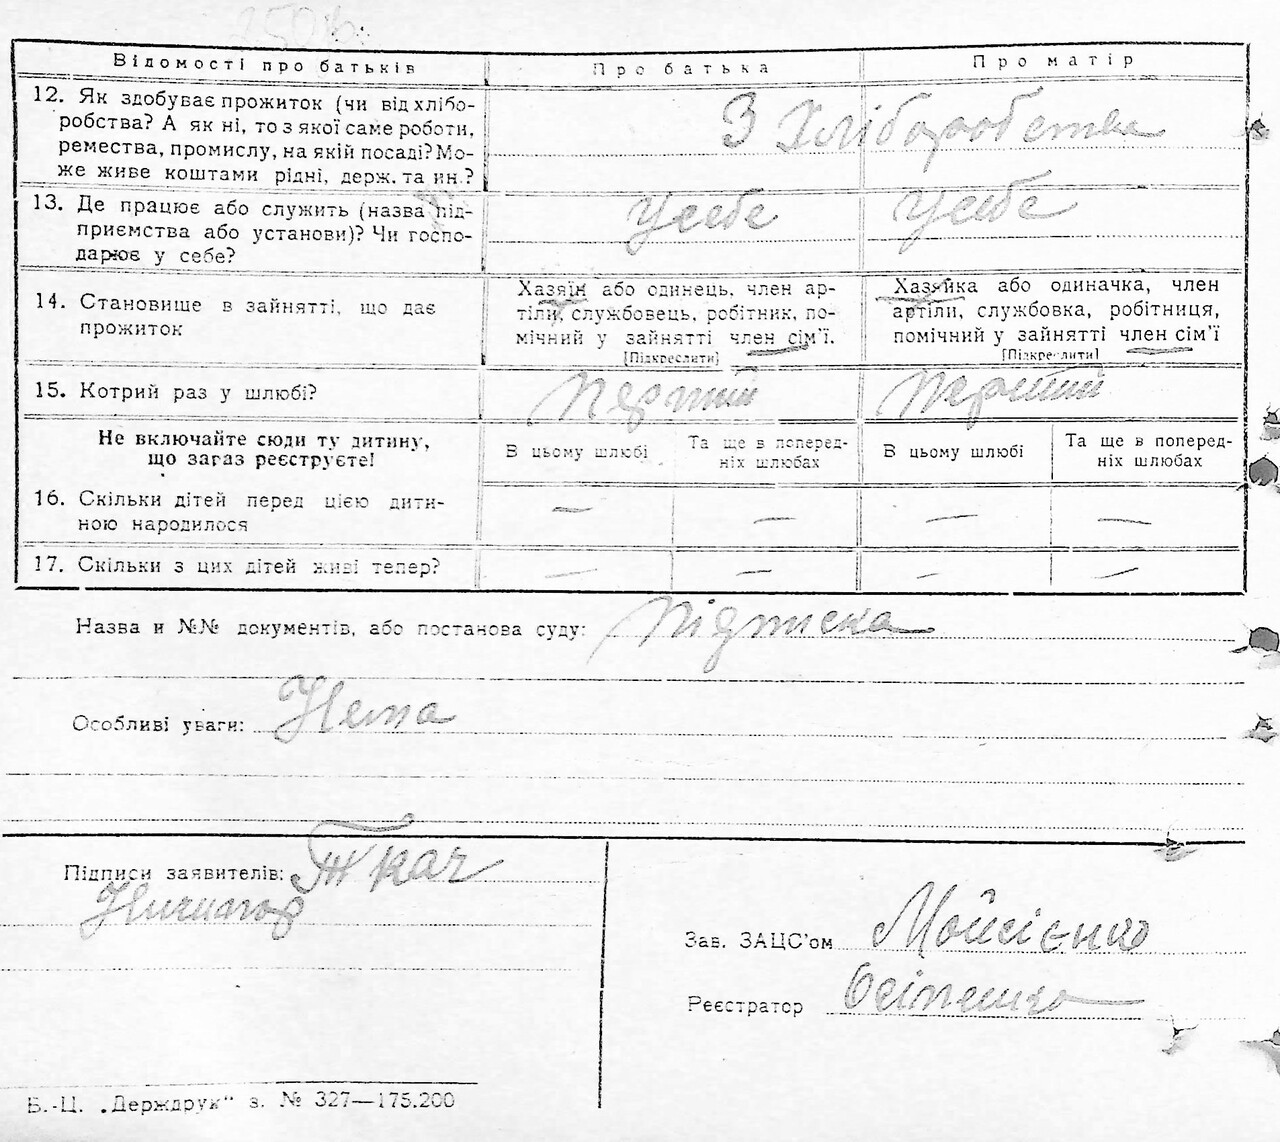 Відомості про батьків Про батька Про матір
12. Як здобуває прожиток (чи від хлібо-
робства? А як ні, то з якої саме роботи,
ремества, промислу, на якій посаді? Мо-
же живе коштами рідні, держ. та ин.?
З Хліборобства
13. Де працює або служить (назва під-
приємства або установи)? Чи госпо-
дарює у себе?
У себе У себе
14. Становище в зайнятті, що дає
прожиток
Хазяїн або одинець, член ар-
тіли, службовець, робітник, по-
мічний у зайнятті член сім'ї.
[Підкреслити]
Хазяйка або одиначка, член
артіли, службовка, робітниця,
помічний у зайнятті член сім'ї
[Підкреслити]
15. Котрий раз у шлюбі?
Перший Перший
Не включайте сюди ту дитину,
що загаз реєструєте!
В цьому шлюбі
Та ще в поперед-
ніх шлюбах
В цьому шлюбі
Та ще в поперед-
ніх шлюбах
16. Скільки дітей перед цією дити-
ною народилося
— — — —
17. Скільки з цих дітей живі тепер?
— — — —
Назва и №№ документів, або постанова суду: Підписка
Особливі уваги: Нема
Підписи заявителів: Ткач
Ничипор
Зав. ЗАЦС'ом Мойсієнко
Реєстратор Осіпенко
Б.-Ц. „Держдрук" з. № 327—175.200